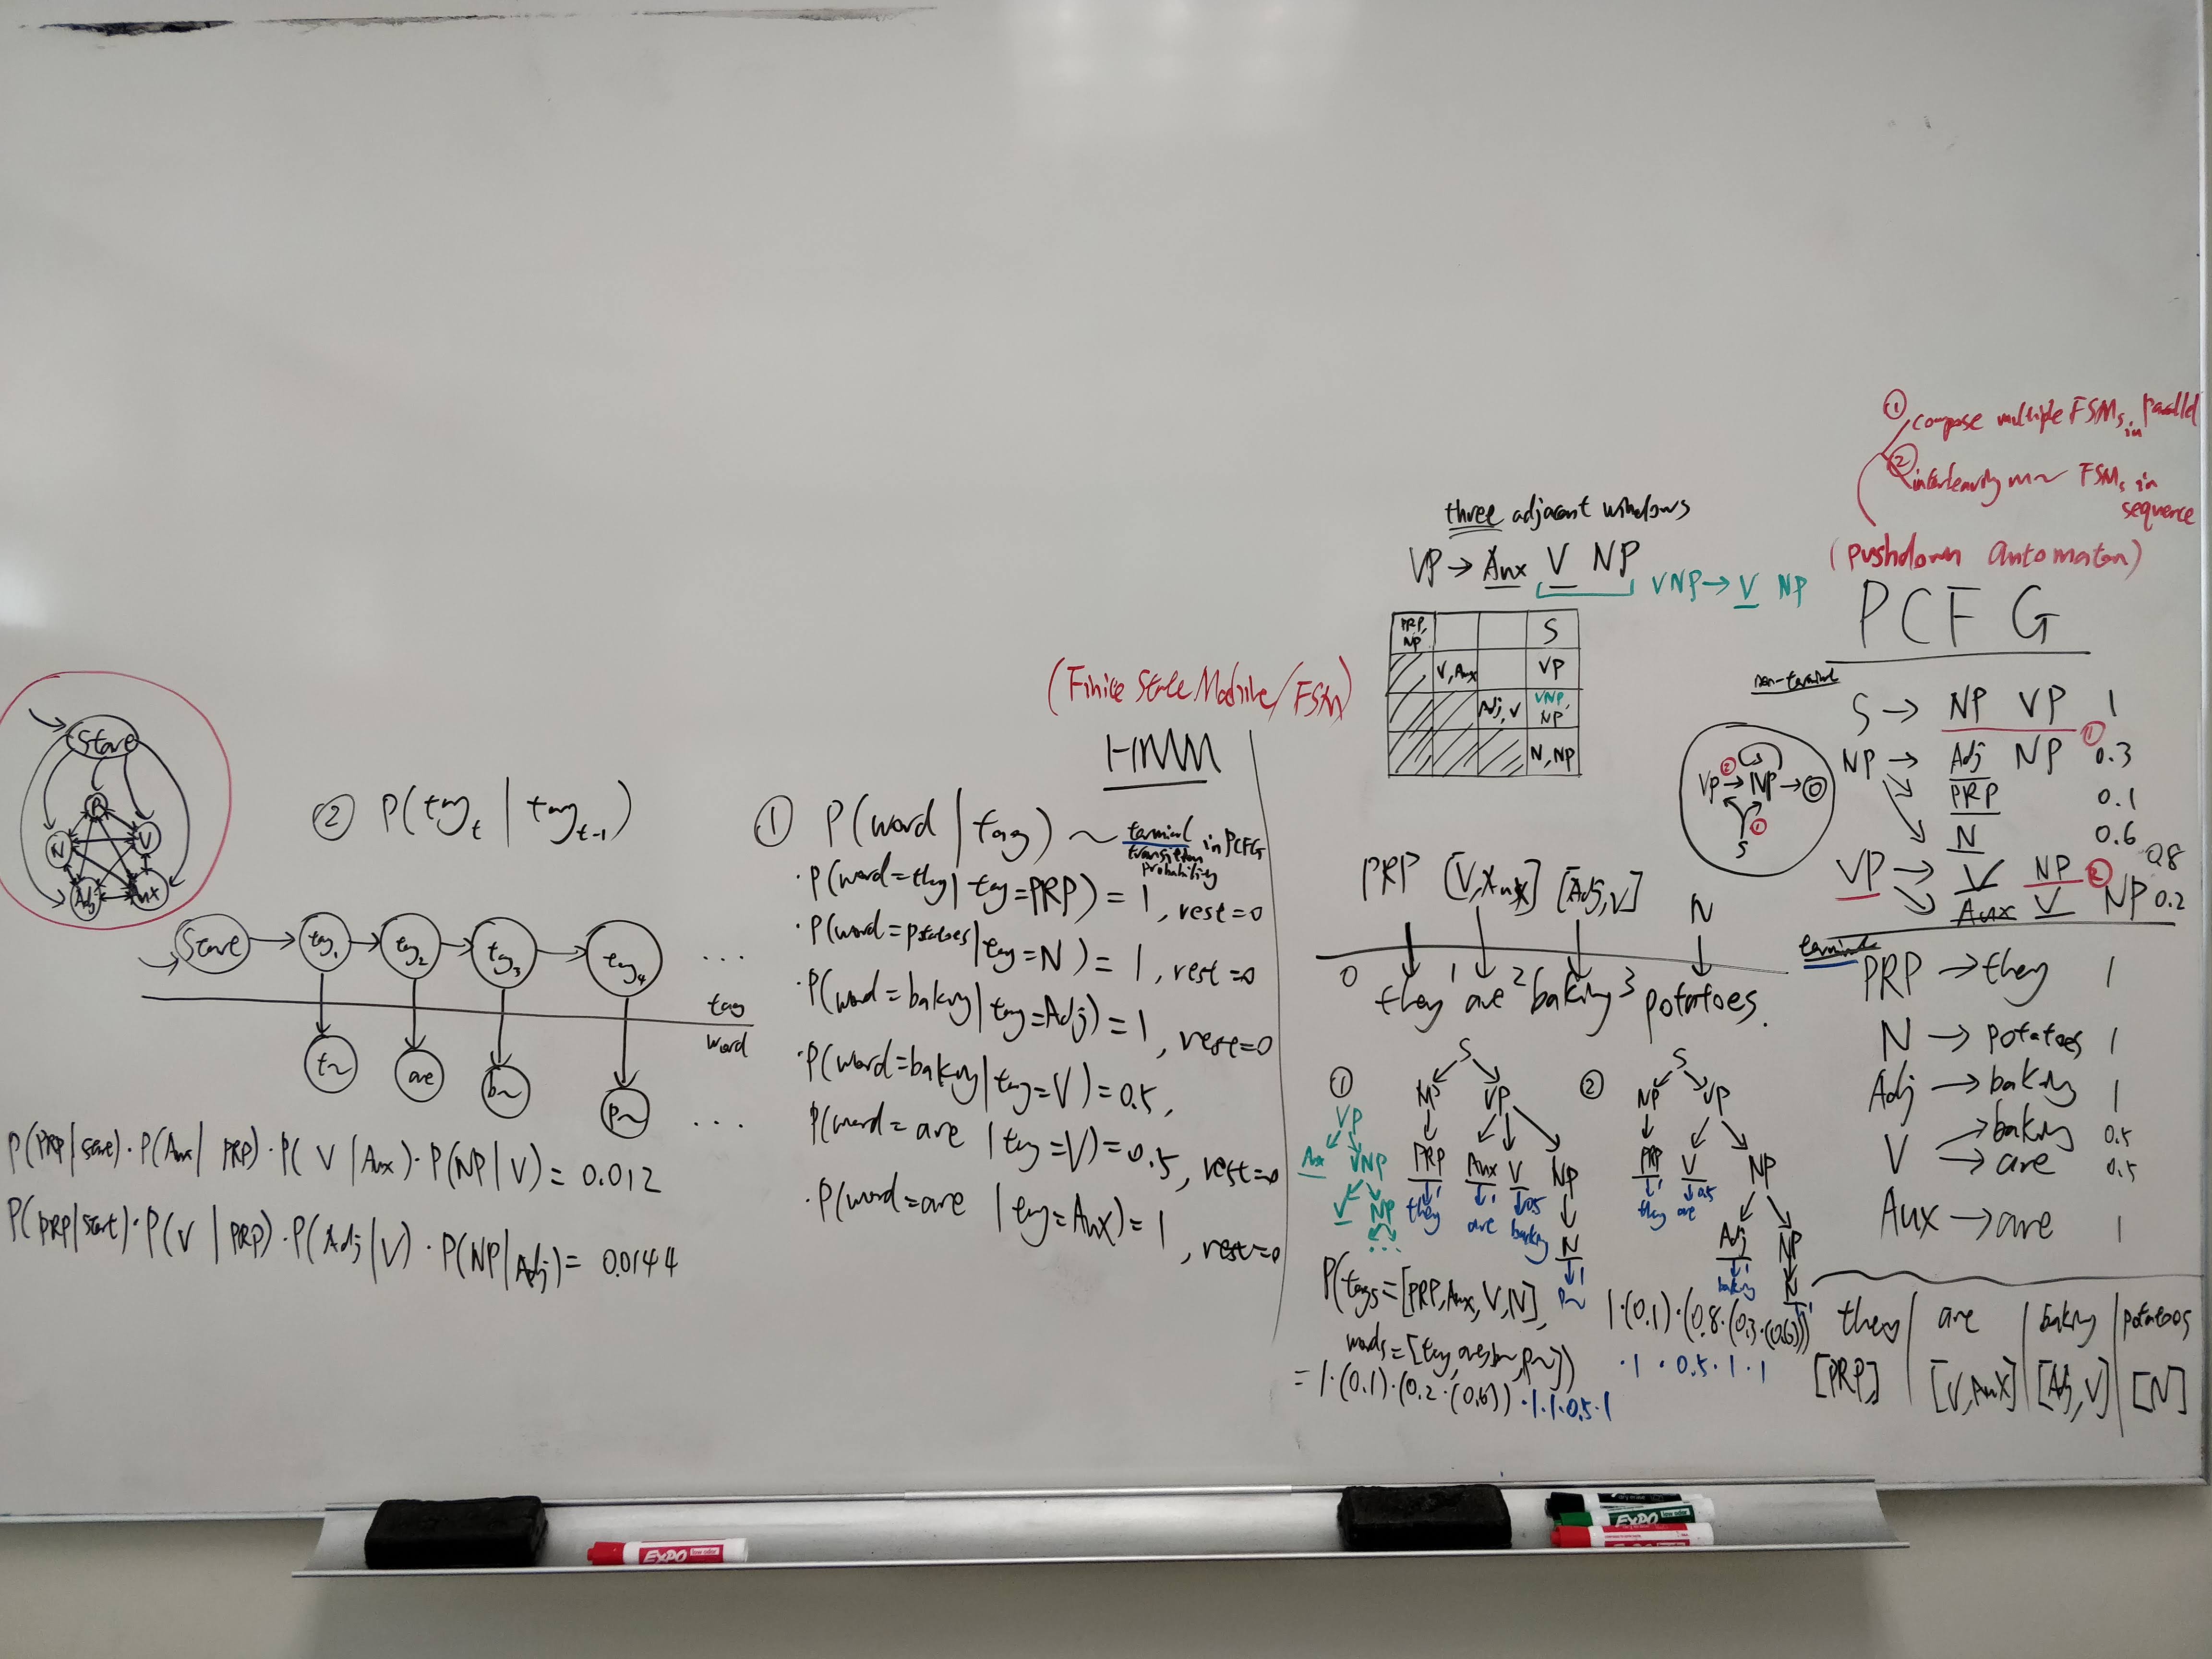 Start
P
N
V
Adj
Aux
② P(tag_t | tag_{t-1})
Start
tag_1
tag_2
tag_3
tag_4
...
tag
word
t~
are
b~
p~
...
P(PRP|start)·P(Aux| PRP)·P( V |Aux)·P(NP|V)= 0.012
P(PRP|start)·P(V | PRP)·P(Adj|V)·P(NP|Adj)= 0.0144
(Finite State Machine/FSM)
HMM
① P(word | tag) ~ terminal in PCFG
transition
probability
·P(word=they| tag=PRP) = 1, rest=0
·P(word=potatoes|tag=N) = 1, rest=0
·P(word=baking|tag=Adj) = 1, rest=0
·P(word=baking|tag=V) = 0.5,
P(word= are |tag=V)=0.5, rest=0
·P(word=are |tag=Aux)= 1, rest=0
three adjacent windows
VP → Aux V NP
VNP → V NP
PRP, NP
S
V, Aux
VP
Adj, V
VNP, NP
N, NP
PRP [V,Aux] [Adj,V] N
0 they 1 are 2 baking 3 potatoes.
①
VP
Aux VNP
V NP
...
S
NP VP
PRP Aux V NP
1 1 0.5
they are baking
N
1
p~
②
S
NP VP
PRP V NP
1 0.5
they are
Adj NP
1
baking
N
1
P(tags=[PRP,Aux,V,N],
words=[they,are,b~,p~])
= 1·(0.1)·(0.2·(0.6))·1·1·0.5·1
1·(0.1)·(0.8·(0.3·(0.6)))
·1·0.5·1·1
① compose multiple FSMs in parallel
② interleaving m~ FSMs in
sequence
(pushdown automaton)
PCFG
non-terminal
S → NP VP 1
①
NP → Adj NP 0.3
PRP 0.1
N 0.6
VP → V NP 0.8
②
Aux V NP 0.2
VP → NP → O
②
①
S
terminal
PRP → they 1
N → potatoes 1
Adj → baking 1
V → baking 0.5
→ are 0.5
Aux → are 1
they | are | baking | potatoes
[PRP] | [V,Aux] | [Adj,V] | [N]
EXPO low odor
EXPO low odor